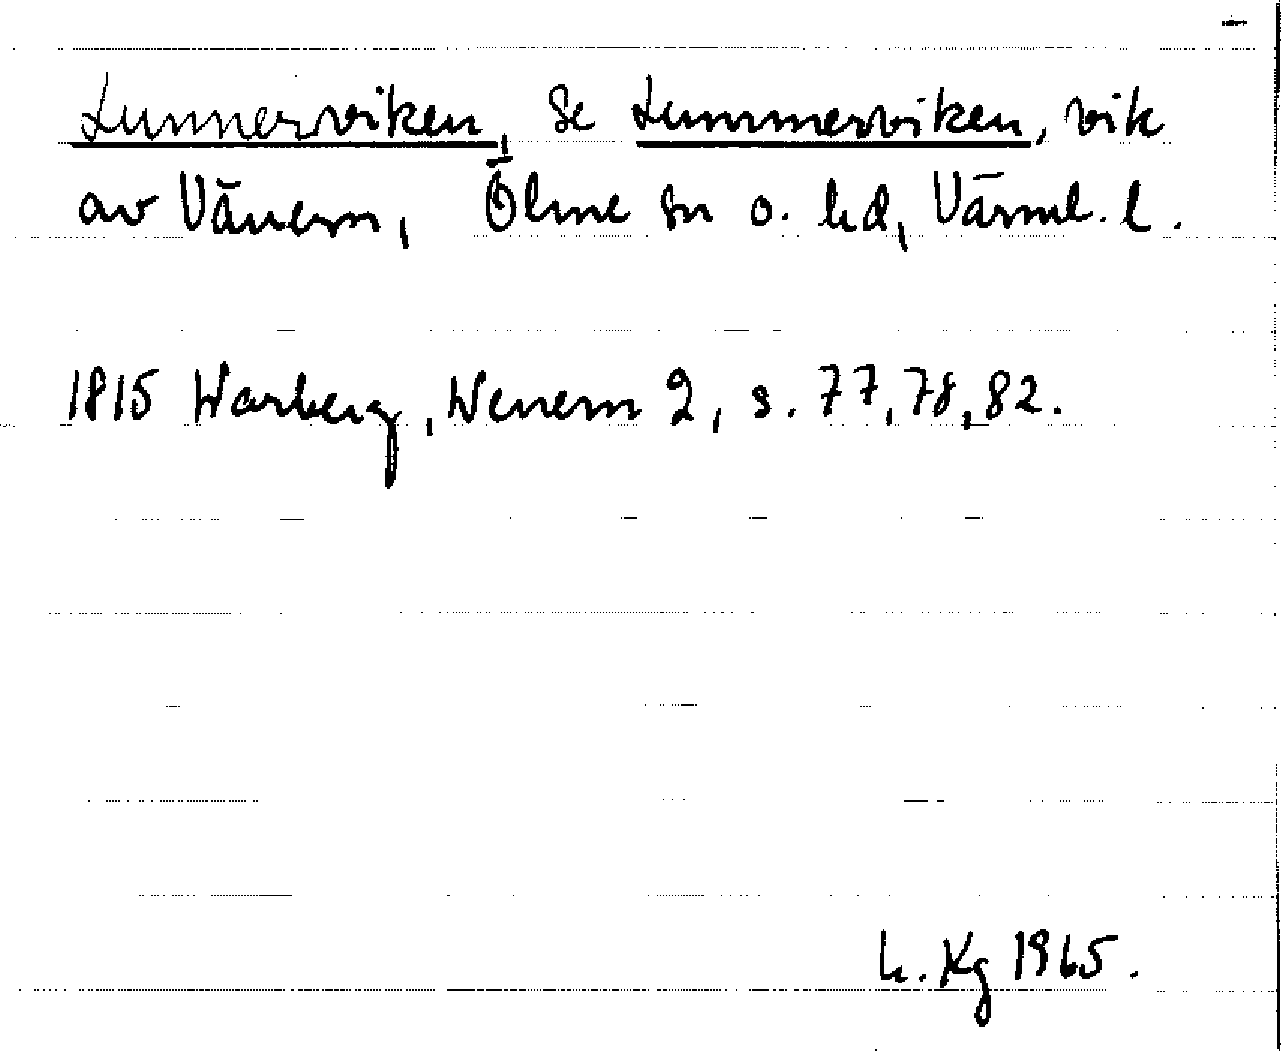 Lunnerviken, Se Lummerviken, vik
av Vänern, Ölme sn o. hd, Värml. l.
1815 Warberg, Wenern 2, s. 77, 78, 82.
h. Kg 1965.